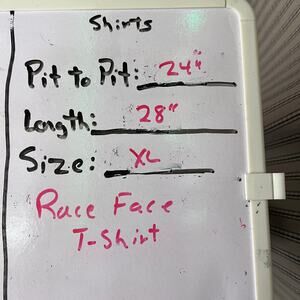 Shirts
Pit to Pit: 24"
Length: 28"
Size: XL
Race Face
T-Shirt